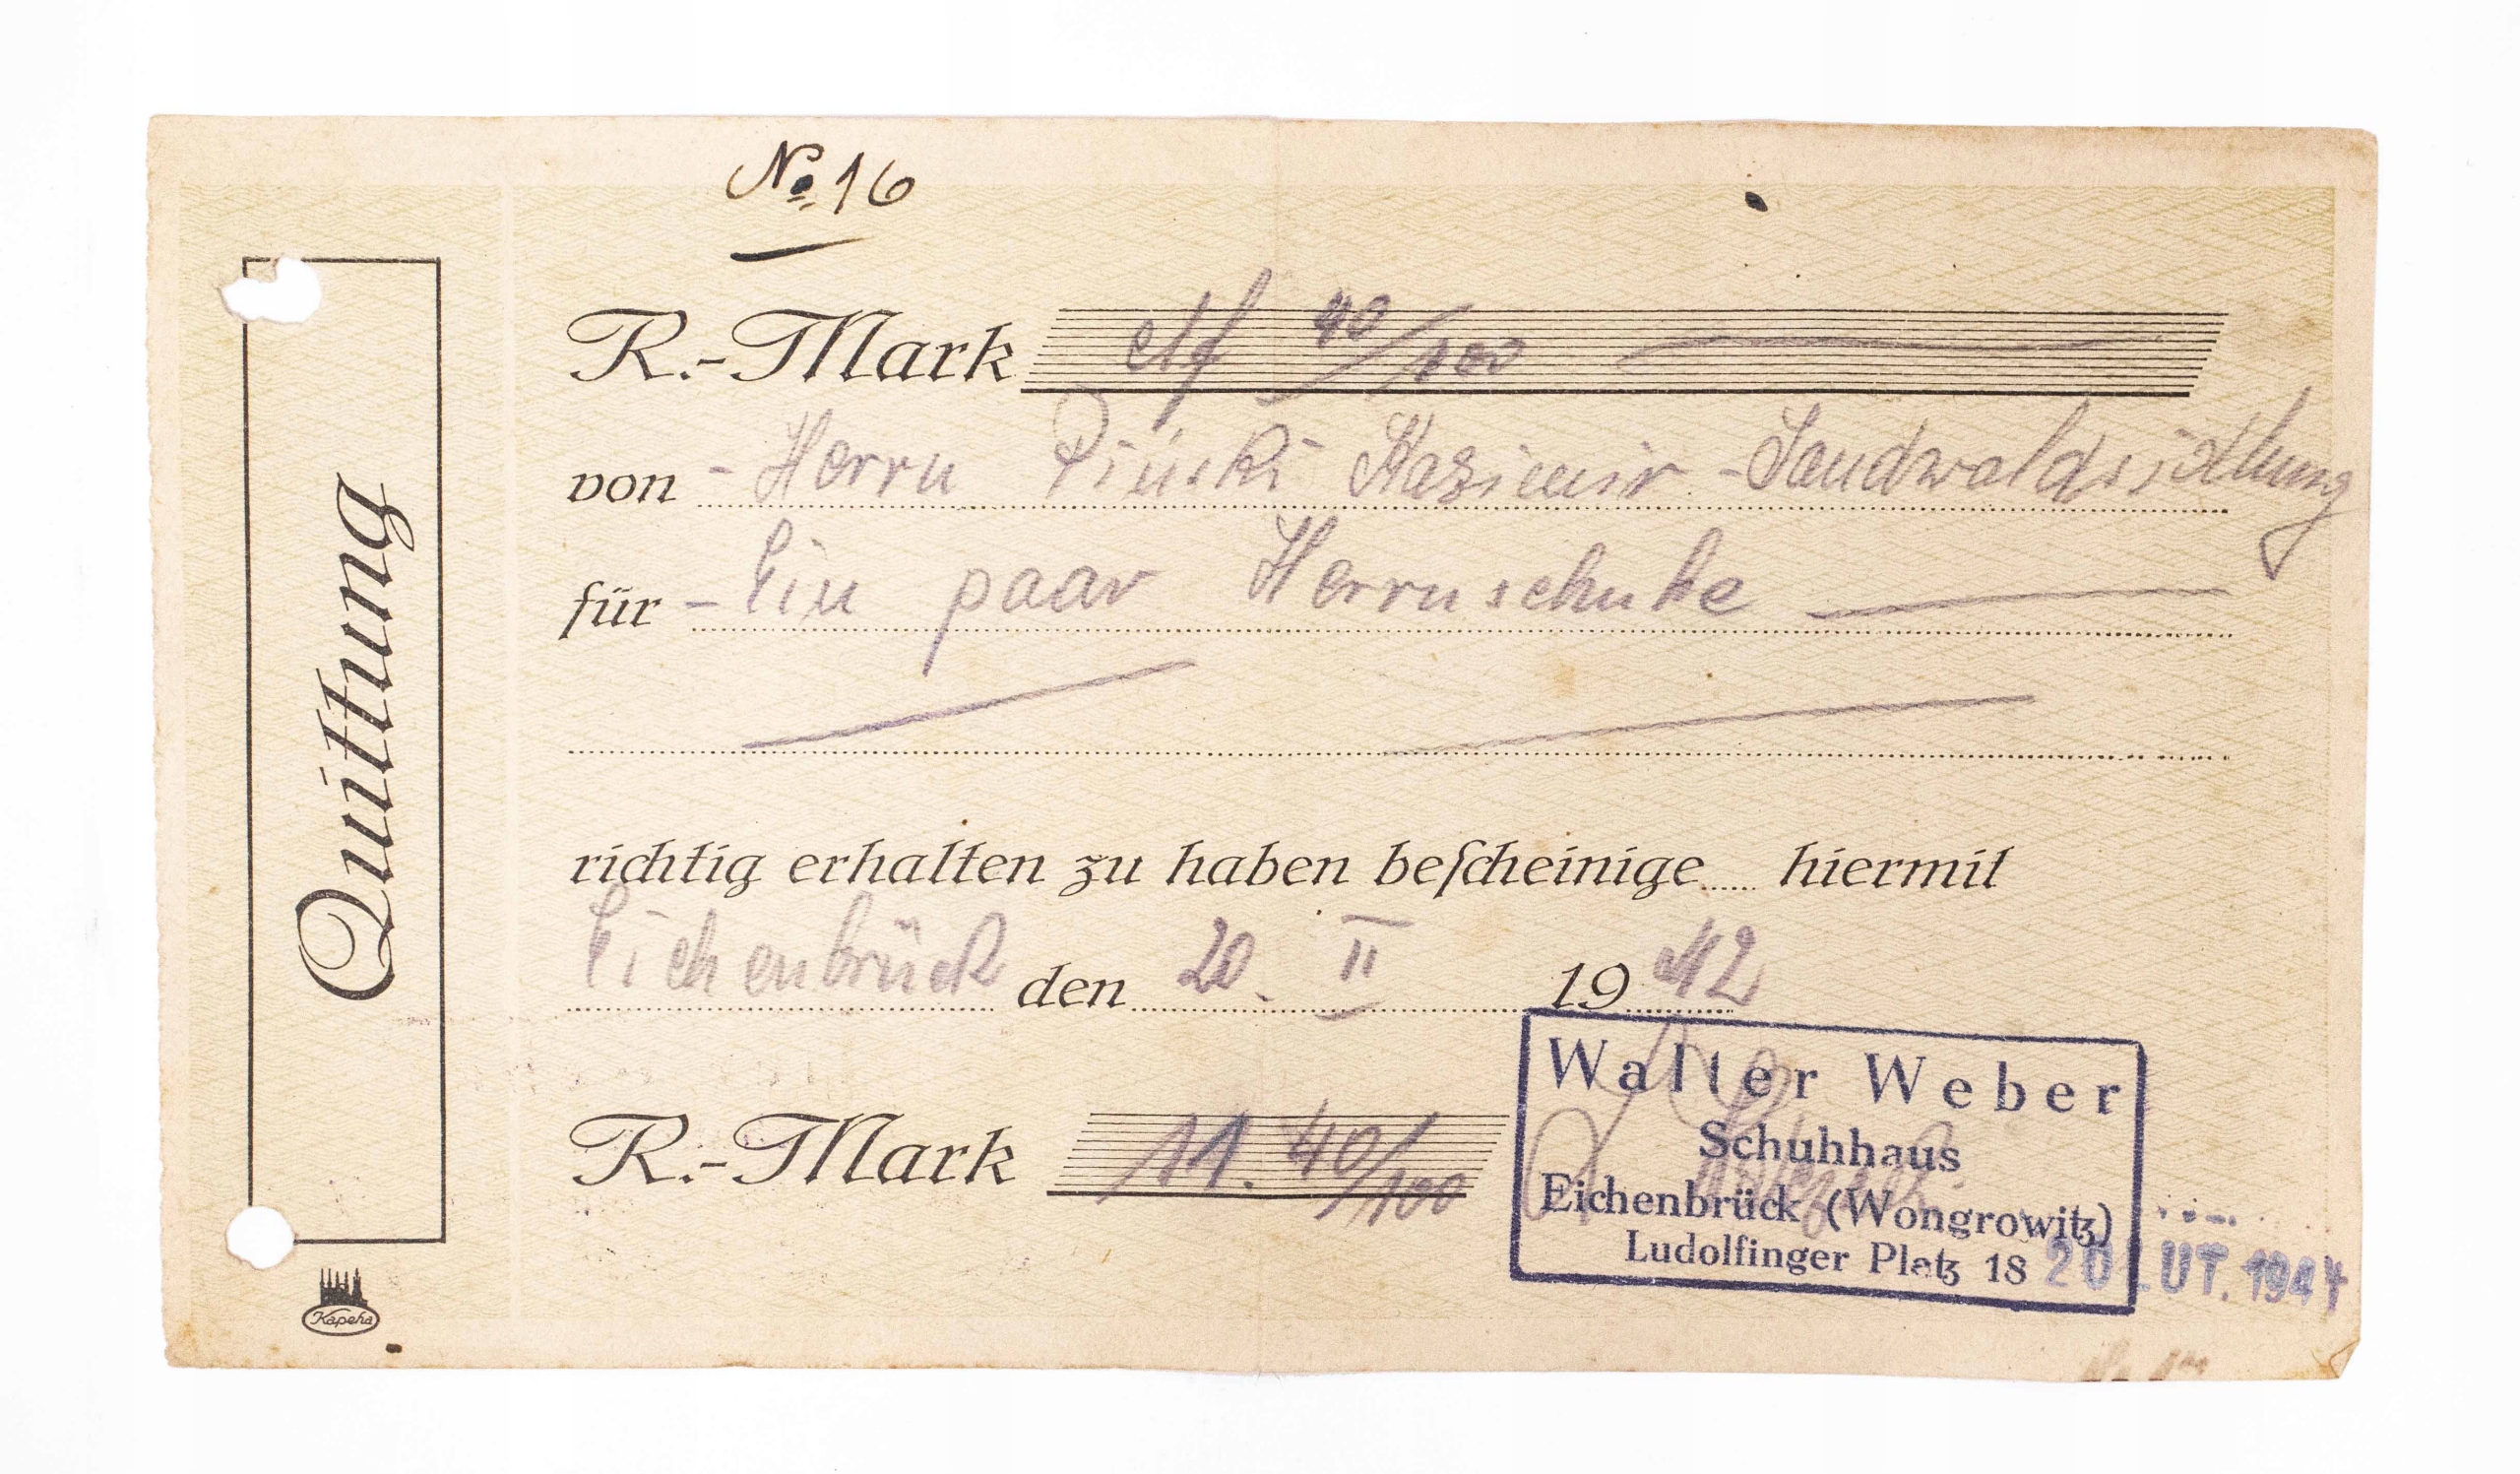 № 16
Quittung
R.-Mark elf 40/100
von - Herrn Pinski Kazimir - Sandwaldsidlung
für - Ein paar Herrnschuhe
richtig erhalten zu haben beſcheinige hiermit
Eichenbrück den 20. II 1942
R.-Mark 11.40/100
Walter Weber
Schuhhaus
Eichenbrück (Wongrowitz)
Ludolfinger Platz 18
20 LUT. 1944
Kapeha